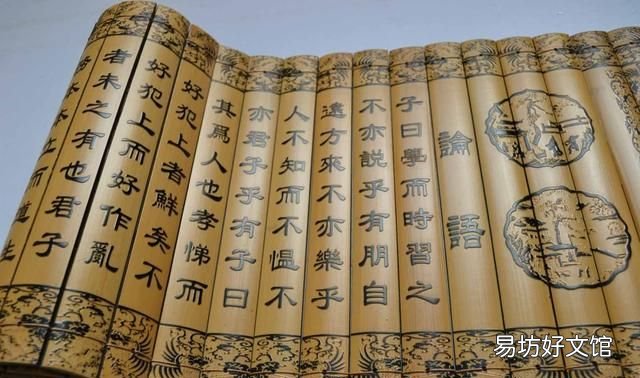 論語
子曰學而時習之
不亦説乎有朋自
遠方來不亦樂乎
人不知而不愠不
亦君子乎有子曰
其爲人也孝悌而
好犯上者鮮矣不
好犯上而好作亂
者未之有也君子
本立而道生
易坊好文馆